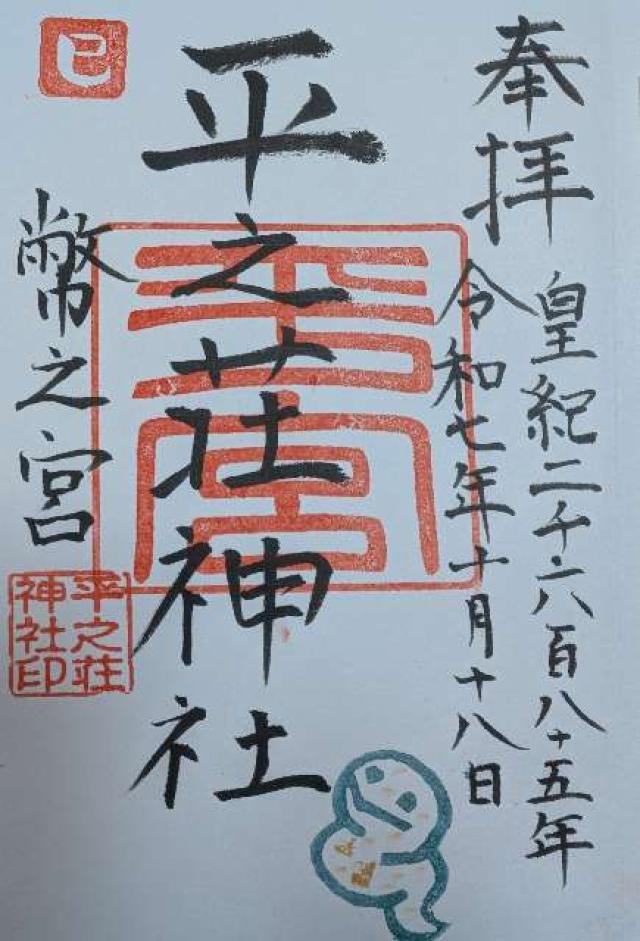 奉拝
皇紀二千六百八十五年
令和七年十月十八日
平之荘神社
幣之宮
巳
平之荘
神社印